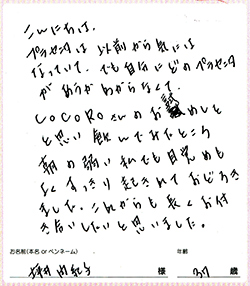 こんにちは。
プラセンタは以前から気には
なっていて、でも自分にどのプラセンタ
があうかわからなくて。
COCOROさんのお試しめしを
と思い飲んでみたところ
朝の弱い私でも目覚めも
よくすっきり起きれておどろき
ました。これからも長くお付
き合いしたいと思いました。
お名前(本名 or ペンネーム) 年齢
様 37 歳